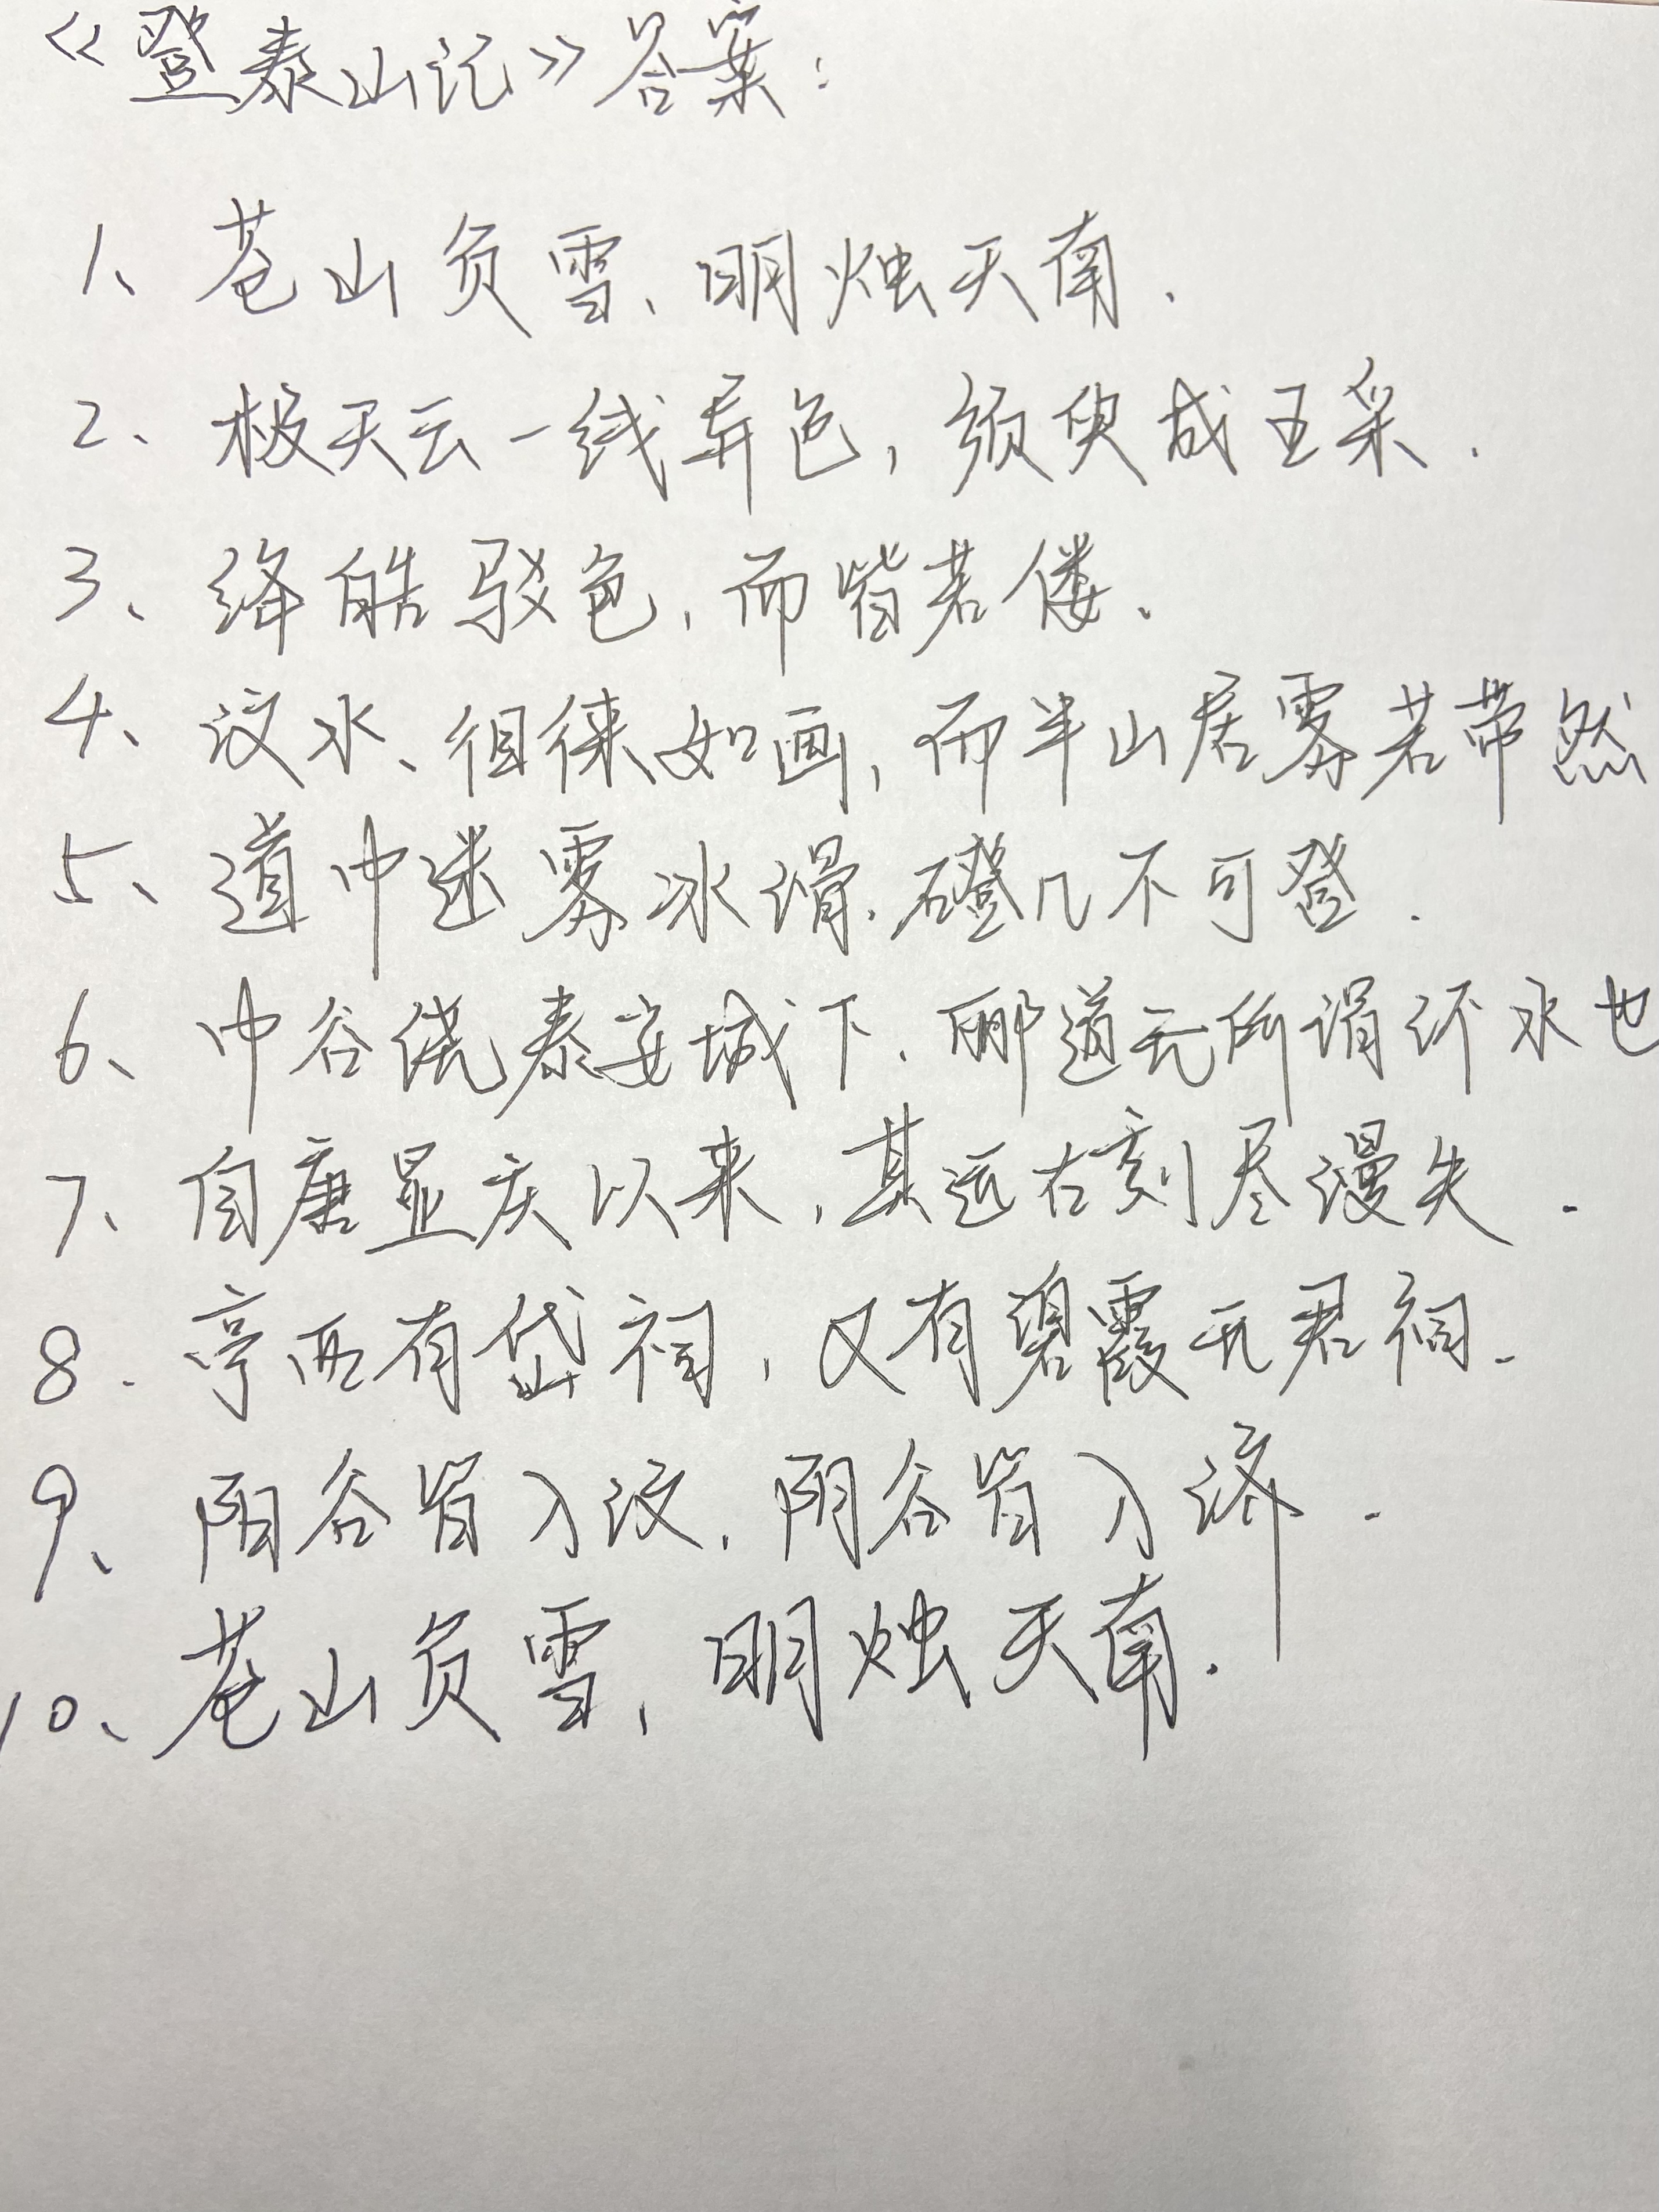 《登泰山记》答案：
1、苍山负雪、明烛天南.
2、极天云一线异色，须臾成五采.
3、绛皓驳色，而皆若偻、
4、汶水、徂徕如画，而半山居雾若带然
5、道中迷雾冰滑.磴几不可登.
6、中谷绕泰安城下.郦道元所谓环水也
7、自唐显庆以来，其远古刻尽漫失.
8.亭西有岱祠，又有碧霞元君祠.
9、阳谷皆入汶，阴谷皆入济.
10、苍山负雪，明烛天南.